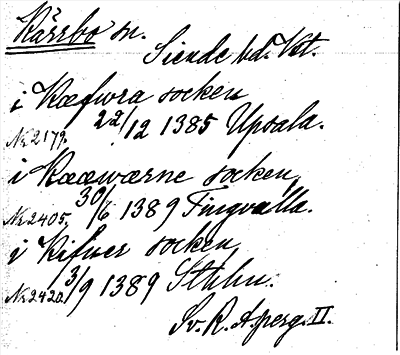 Kärrbo sn.
Siende hd. Vst.
i Kæfwra socken
Nr 2179. 22/12 1385 Upsala.
i Kææwærne socken,
Nr 2405. 30/6 1389 Tingvalla.
i Kifuer socken,
Nr 2420. 3/9 1389 Sthlm.
Sv. R. Aperg. II.